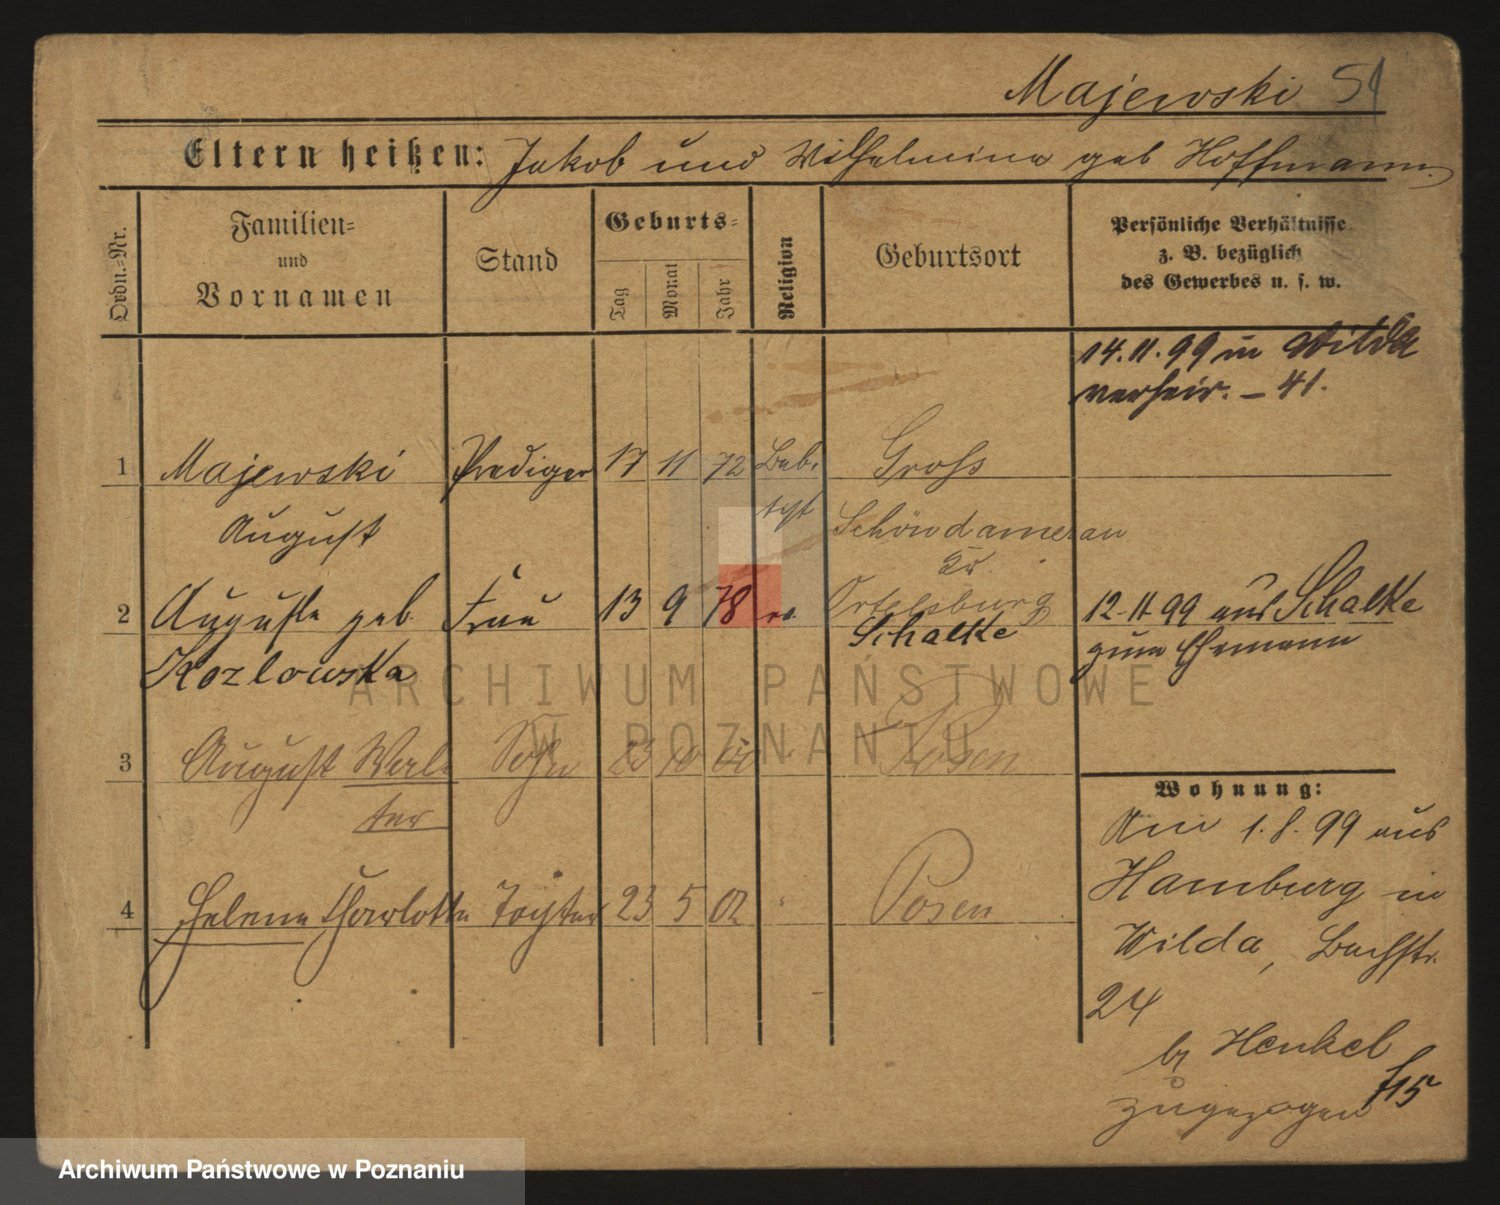 Majewski 51
Eltern heißen: Jakob und Wilhelmine geb Hoffmann
Ordn.-Nr.
Familien-
und
Vornamen
Stand
Geburts-
Tag
Monat
Jahr
Religion
Geburtsort
Persönliche Verhältnisse
z. B. bezüglich
des Gewerbes u. s. w.
14.11.99 in Wilda
verheir. – 41.
1 Majewski Prediger 17 11 72 Bab- Groß
August tist Schöndamerau
Kr.
Ortelsburg
2 Auguste geb. Frau 13 9 78 Schalke
Kozlowska
12-11 99 aus Schalke
zum Ehemann
3 August Wal- Sohn 23 10 00 Posen
ter
4 Helene Charlotte Tochter 23 5 02 Posen
Wohnung:
Am 1.8.99 aus
Hamburg in
Wilda, Bachstr.
24
by Henkel
zugezogen
f15
ARCHIWUM PAŃSTWOWE
W POZNANIU
Archiwum Państwowe w Poznaniu